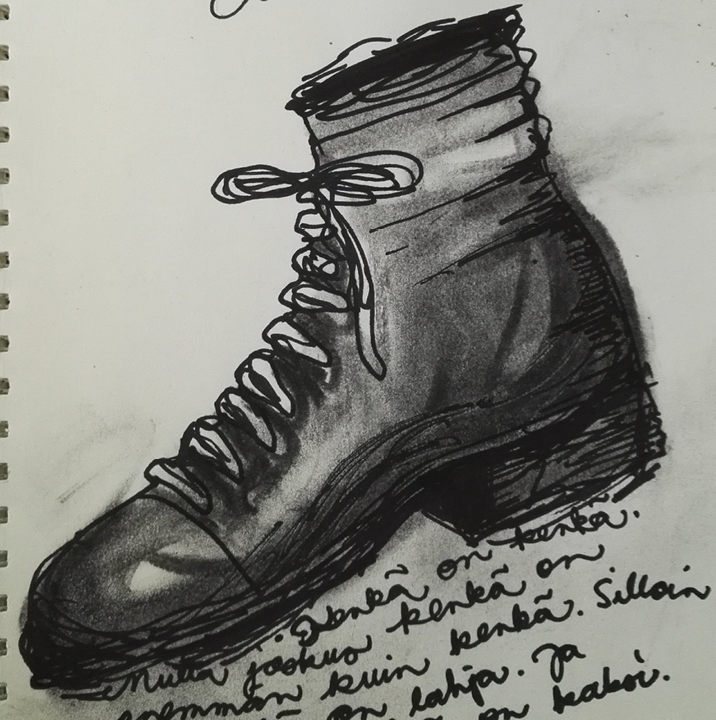 Jenkä on kenkä.
Mutta joskus kenkä on
enemmän kuin kenkä. Silloin
on lahja. Ja
on kaksi.